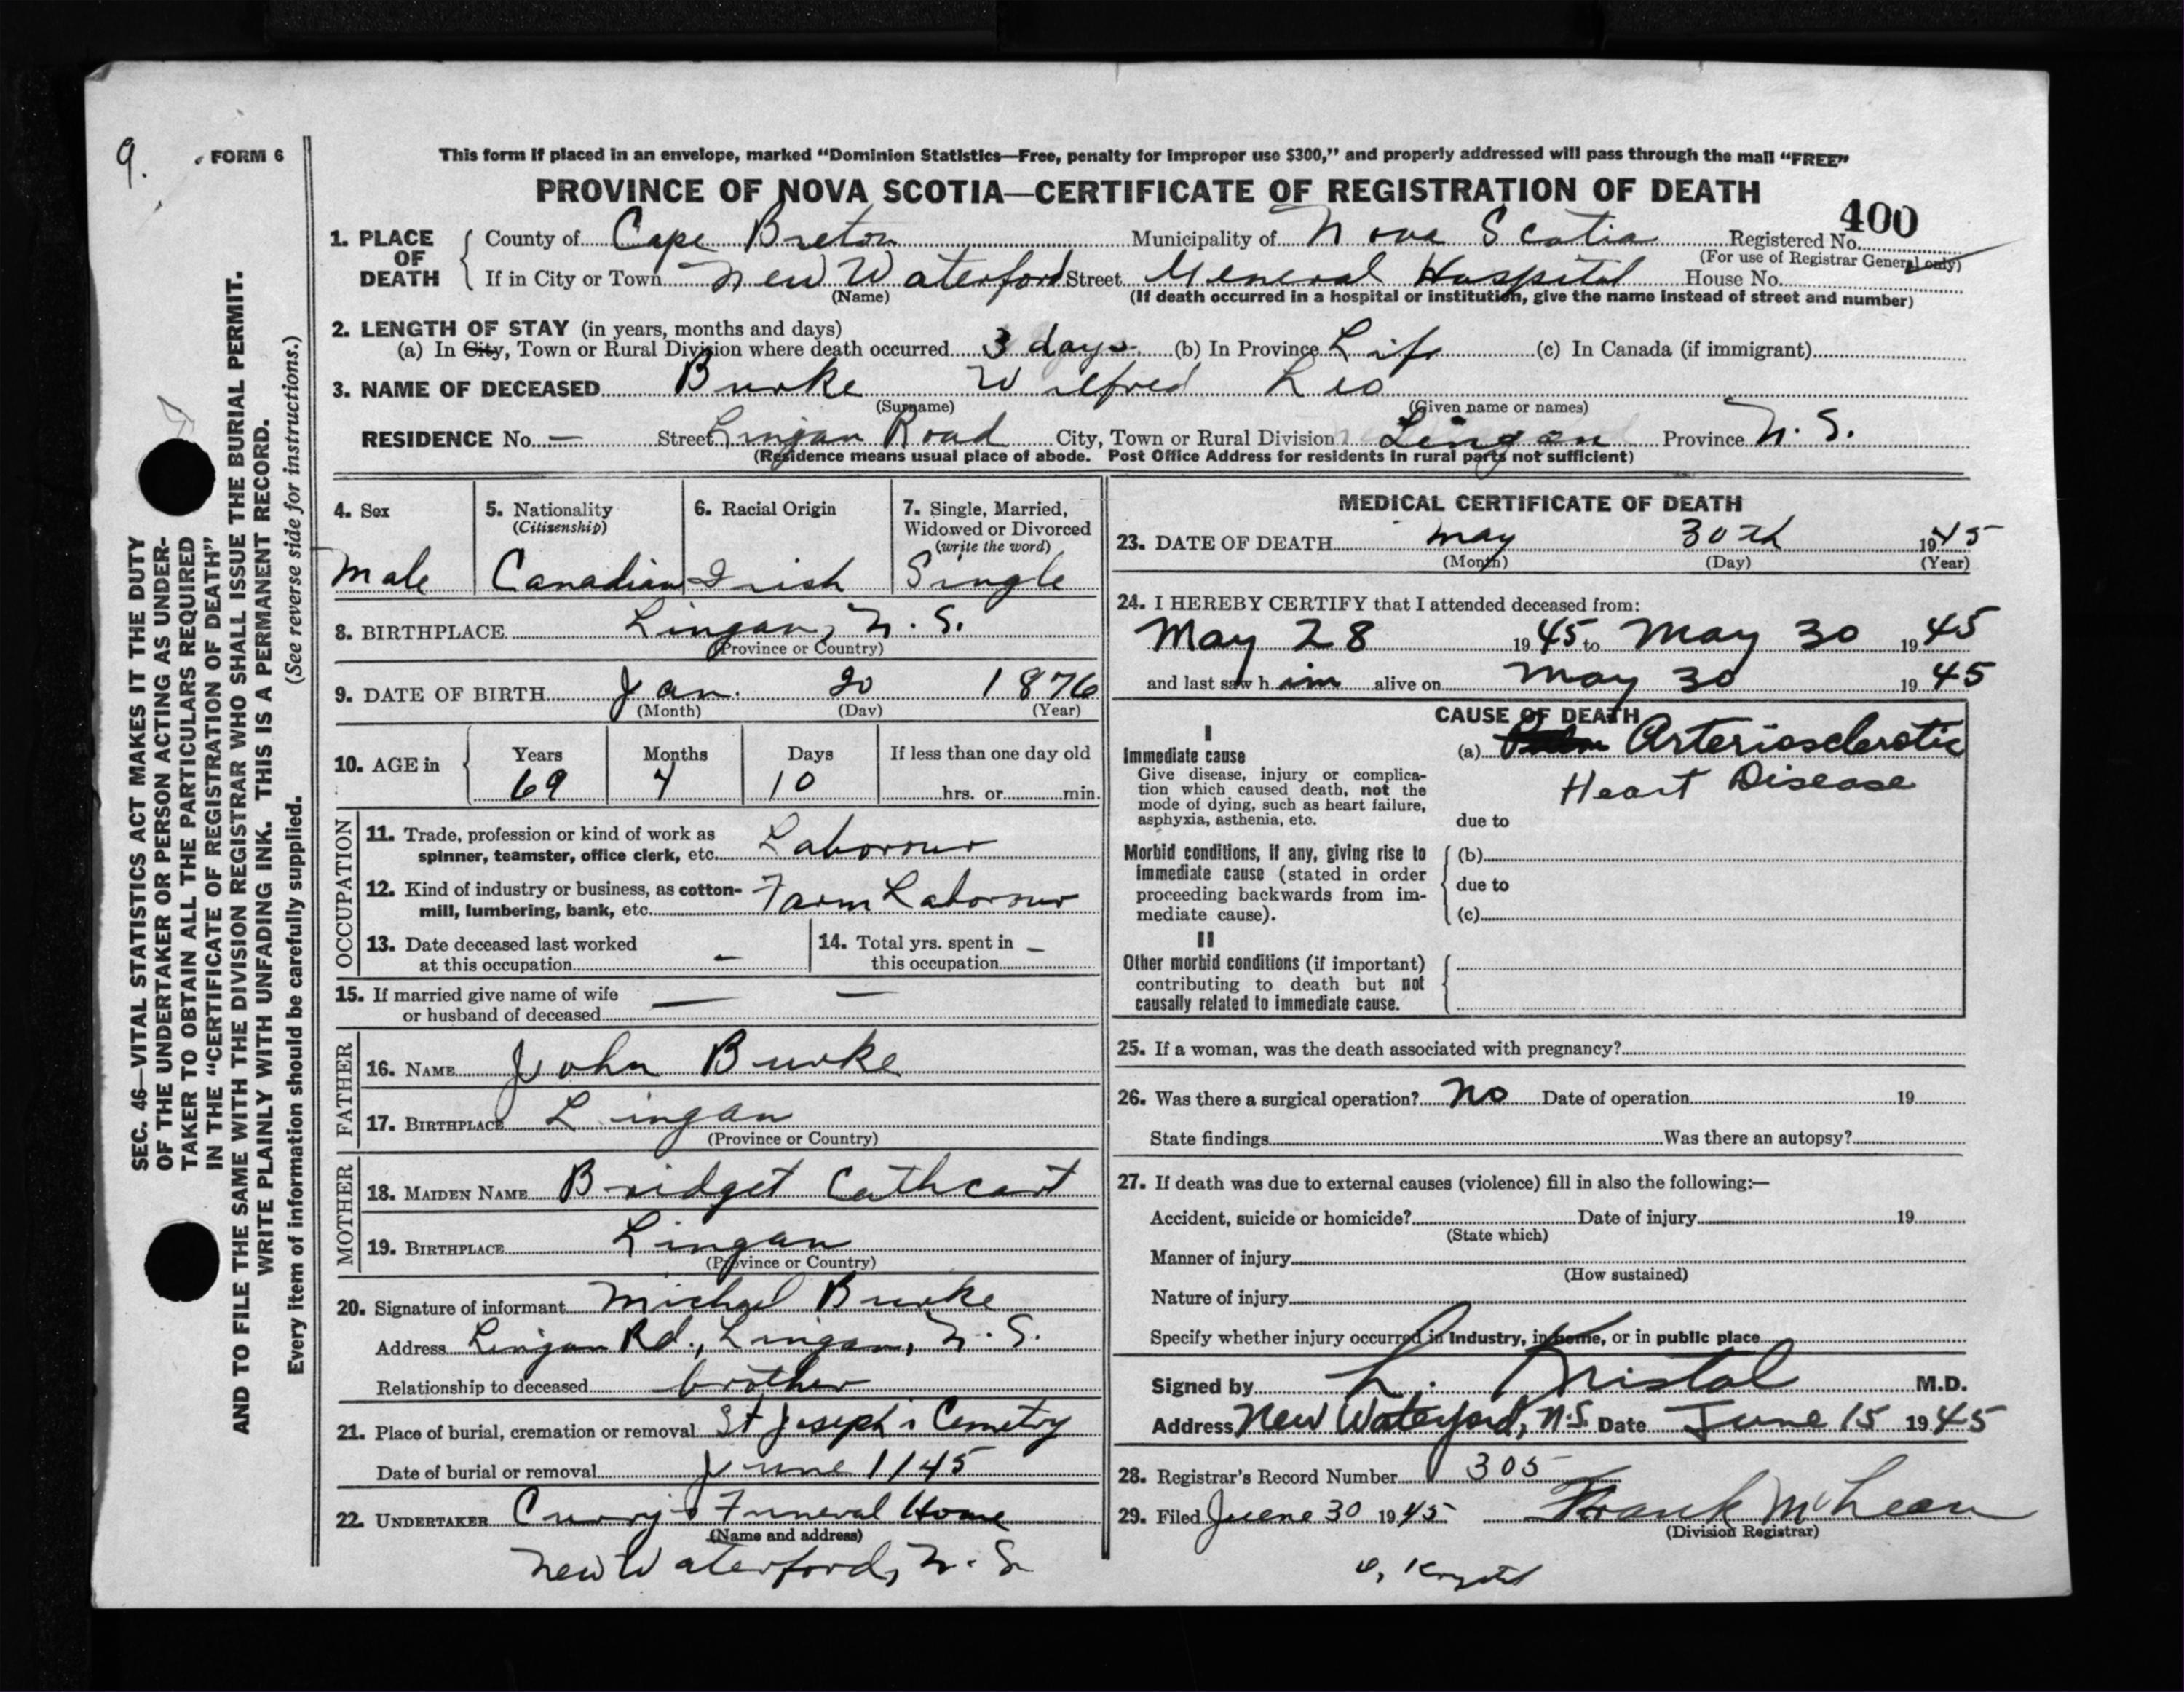 9.
FORM 6
This form if placed in an envelope, marked "Dominion Statistics—Free, penalty for improper use $300," and properly addressed will pass through the mail "FREE"
PROVINCE OF NOVA SCOTIA—CERTIFICATE OF REGISTRATION OF DEATH
400
1. PLACE OF DEATH County of Cape Breton Municipality of Nova Scotia Registered No.
(For use of Registrar General only)
If in City or Town New Waterford Street General Hospital House No.
(Name) (If death occurred in a hospital or institution, give the name instead of street and number)
2. LENGTH OF STAY (in years, months and days)
(a) In City, Town or Rural Division where death occurred 3 days (b) In Province Life (c) In Canada (if immigrant)
3. NAME OF DECEASED Burke Wilfred Leo
(Surname) (Given name or names)
RESIDENCE No. — Street Lingan Road City, Town or Rural Division Lingan Province N. S.
(Residence means usual place of abode. Post Office Address for residents in rural parts not sufficient)
4. Sex
Male
5. Nationality
(Citizenship)
Canadian
6. Racial Origin
Irish
7. Single, Married,
Widowed or Divorced
(write the word)
Single
8. BIRTHPLACE Lingan, N. S.
(Province or Country)
9. DATE OF BIRTH Jan. 20 1876
(Month) (Day) (Year)
10. AGE in Years Months Days If less than one day old
69 4 10 hrs. or min.
OCCUPATION
11. Trade, profession or kind of work as
spinner, teamster, office clerk, etc. Labourer
12. Kind of industry or business, as cotton-
mill, lumbering, bank, etc. Farm Labourer
13. Date deceased last worked
at this occupation —
14. Total yrs. spent in
this occupation —
15. If married give name of wife
or husband of deceased — —
FATHER
16. NAME John Burke
17. BIRTHPLACE Lingan
(Province or Country)
MOTHER
18. MAIDEN NAME Bridget Cathcart
19. BIRTHPLACE Lingan
(Province or Country)
20. Signature of informant Michael Burke
Address Lingan Rd., Lingan, N. S.
Relationship to deceased brother
21. Place of burial, cremation or removal St Joseph's Cemetry
Date of burial or removal June 1/45
22. UNDERTAKER Curry's Funeral Home
(Name and address)
New Waterford, N. S.
MEDICAL CERTIFICATE OF DEATH
23. DATE OF DEATH May 30th 1945
(Month) (Day) (Year)
24. I HEREBY CERTIFY that I attended deceased from:
May 28 1945 to May 30 1945
and last saw him alive on May 30 1945
CAUSE OF DEATH
I
Immediate cause
Give disease, injury or complica-
tion which caused death, not the
mode of dying, such as heart failure,
asphyxia, asthenia, etc.
(a) Arteriosclerotic
Heart Disease
due to
Morbid conditions, if any, giving rise to
immediate cause (stated in order
proceeding backwards from im-
mediate cause).
(b)
due to
(c)
II
Other morbid conditions (if important)
contributing to death but not
causally related to immediate cause.
25. If a woman, was the death associated with pregnancy?
26. Was there a surgical operation? No Date of operation 19
State findings Was there an autopsy?
27. If death was due to external causes (violence) fill in also the following:—
Accident, suicide or homicide? Date of injury 19
(State which)
Manner of injury
(How sustained)
Nature of injury
Specify whether injury occurred in industry, in home, or in public place
Signed by L. Kristal M.D.
Address New Waterford, N.S. Date June 15 1945
28. Registrar's Record Number 305
29. Filed June 30 1945 Frank McLean
(Division Registrar)
SEC. 46—VITAL STATISTICS ACT MAKES IT THE DUTY
OF THE UNDERTAKER OR PERSON ACTING AS UNDER-
TAKER TO OBTAIN ALL THE PARTICULARS REQUIRED
IN THE "CERTIFICATE OF REGISTRATION OF DEATH"
AND TO FILE THE SAME WITH THE DIVISION REGISTRAR WHO SHALL ISSUE THE BURIAL PERMIT.
WRITE PLAINLY WITH UNFADING INK. THIS IS A PERMANENT RECORD.
Every item of information should be carefully supplied. (See reverse side for instructions.)